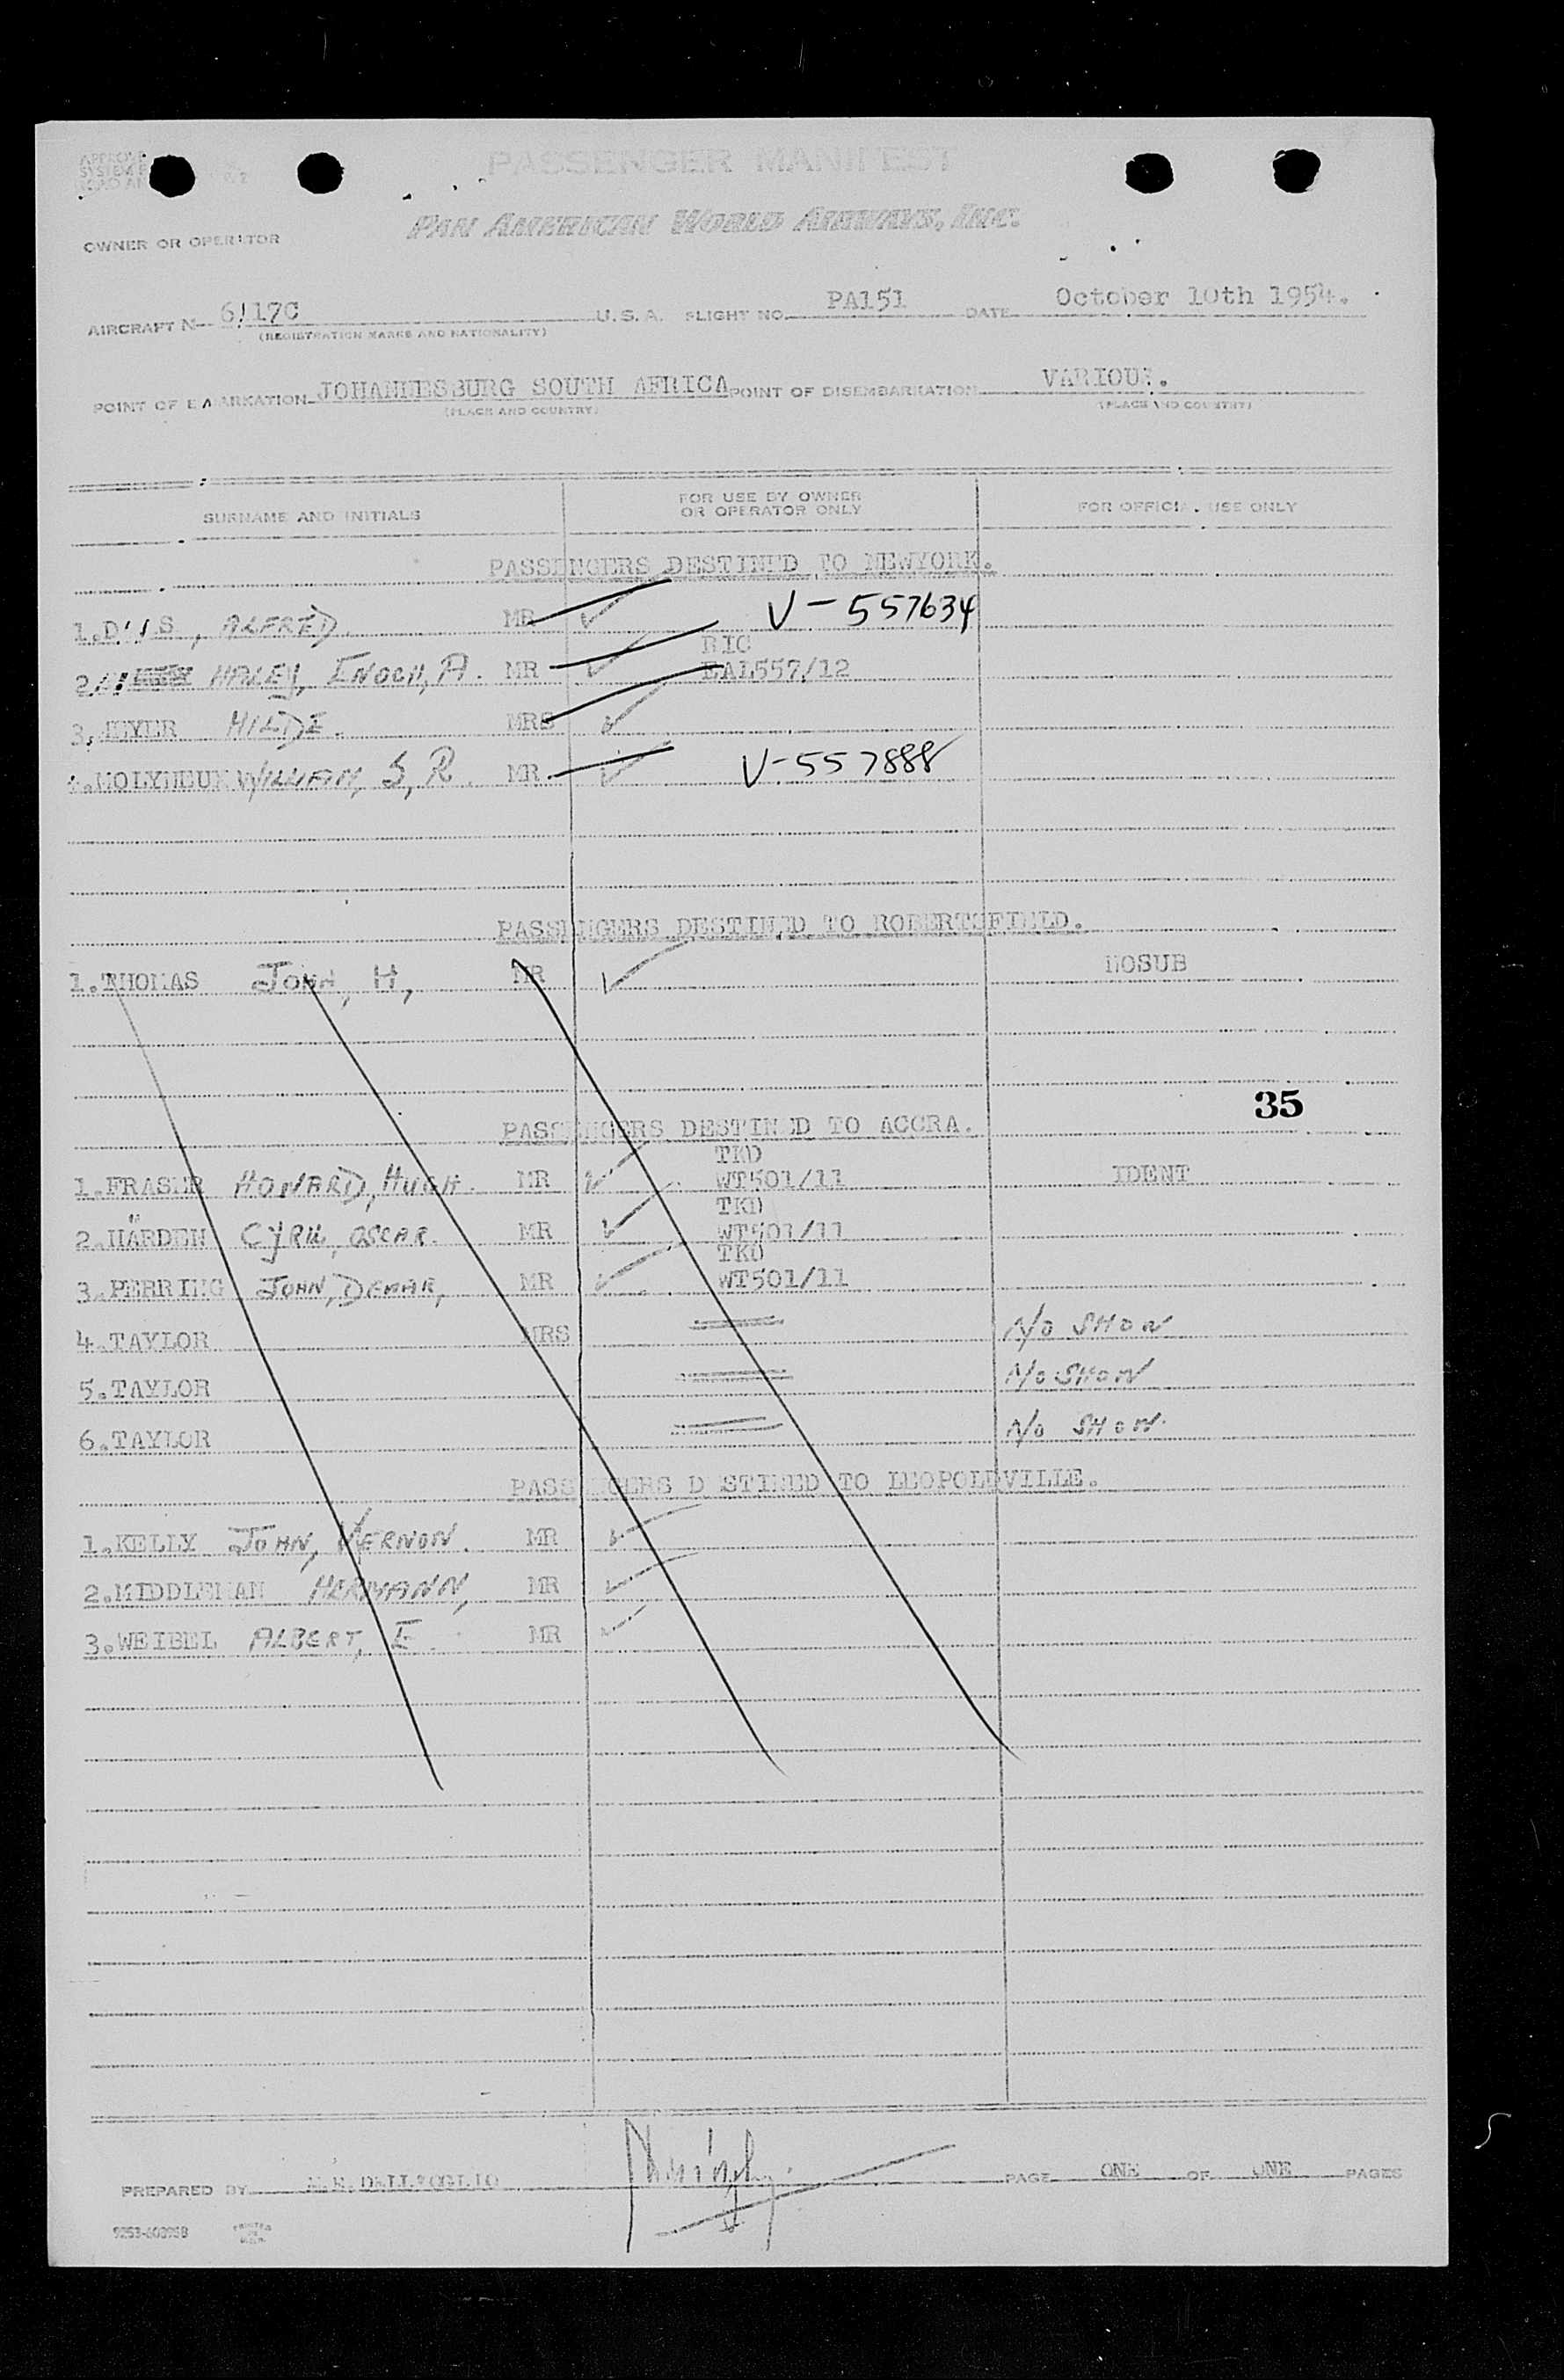 PASSENGER MANIFEST
PAN AMERICAN WORLD AIRWAYS, INC.
OWNER OR OPERATOR
AIRCRAFT N U.S.A. FLIGHT NO. PA151 DATE October 10th 1954.
(REGISTRATION MARKS AND NATIONALITY)
POINT OF EMBARKATION JOHANNESBURG SOUTH AFRICA POINT OF DISEMBARKATION VARIOUS.
(PLACE AND COUNTRY) (PLACE AND COUNTRY)
SURNAME AND INITIALS FOR USE BY OWNER OR OPERATOR ONLY FOR OFFICIAL USE ONLY
PASSENGERS DESTINED TO NEWYORK.
1. ALFRED. MR V-557634
RIC
2. HALEY, ENOCH, A. MR EAL557/12
3. MEYER HILDE. MRS
4.MOLYNEUX WILLIAM, S, R. MR. V-557888
PASSENGERS DESTINED TO ROBERTSFIELD.
1.THOMAS JOHN, H, MR NOSUB
35
PASSENGERS DESTINED TO ACCRA.
TKD
1.FRASER HOWARD, HUGH. MR WT501/11 IDENT
TKD
2.HARDEN CYRIL, OSCAR. MR WT501/11
TKD
3.PERRING JOHN, MR WT501/11
4.TAYLOR MRS N/O SHOW
5.TAYLOR N/O SHOW
6.TAYLOR N/O SHOW.
PASSENGERS DESTINED TO LEOPOLDVILLE.
1.KELLY JOHN, VERNON. MR
2.MIDDLEMAN HERMANN, MR
3.WEIBEL ALBERT, E. MR
PREPARED BY PAGE ONE OF ONE PAGES
PRINTED IN U.S.A.